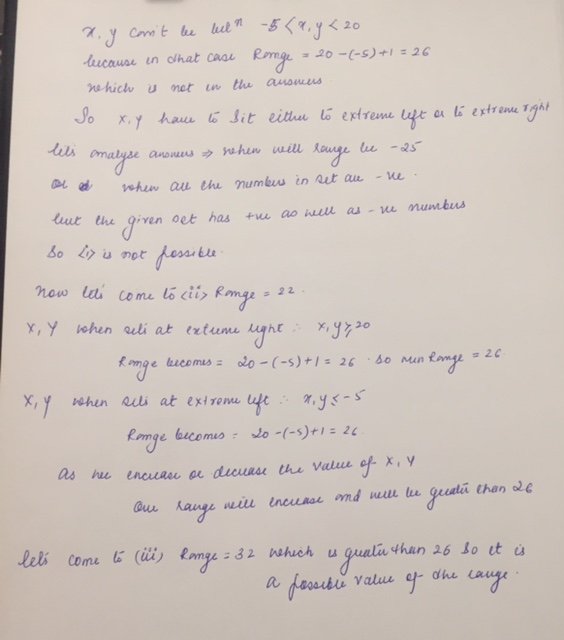 x, y can't be betn -5 < x, y < 20
because in that case Range = 20 - (-5) + 1 = 26
which is not in the answers.
So x, y have to sit either to extreme left or to extreme right
let's analyse answers ⇒ when will range be -25
when all the numbers in set are -ve.
but the given set has +ve as well as -ve numbers
So <i> is not possible.
Now let's come to <ii> Range = 22.
X, Y when sits at extreme right ∴ x, y ≥ 20
Range becomes = 20 - (-5) + 1 = 26. So min Range = 26.
X, Y when sits at extreme left ∴ x, y ≤ -5
Range becomes = 20 - (-5) + 1 = 26.
As we encrease or decrease the value of X, Y
Our range will encrease and will be greater than 26
let's come to (iii) Range = 32 which is greater than 26 So it is
a possible value of the range.